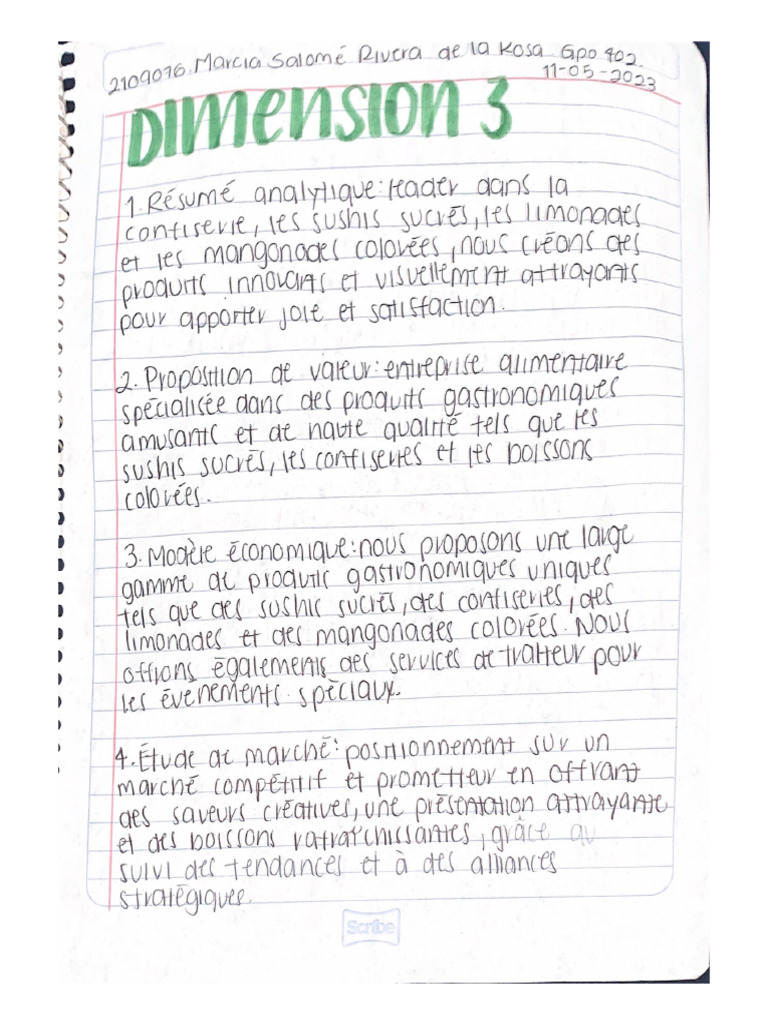 2109076. Marcia Salomé Rivera de la Rosa Gpo 402.
11-05-2023
DIMENSION 3
1. Résumé analytique: leader dans la
confiserie, les sushis sucrés, les limonades
et les mangonades colorées, nous créons des
produits innovants et visuellement attrayants
pour apporter joie et satisfaction.
2. Proposition de valeur: entreprise alimentaire
spécialisée dans des produits gastronomiques
amusants et de haute qualité tels que les
sushis sucrés, les confiseries et les boissons
colorées.
3. Modèle économique: nous proposons une large
gamme de produits gastronomiques uniques
tels que des sushis sucrés, des confiseries, des
limonades et des mangonades colorées. Nous
offrons égalements des services de traiteur pour
les évenements spéciaux.
4. Étude de marché: positionnement sur un
marché compétitif et prometteur en offrant
des saveurs créatives, une présentation attrayante
et des boissons rafraîchissantes, grâce au
suivi des tendances et à des alliances
stratégiques.
Scribe